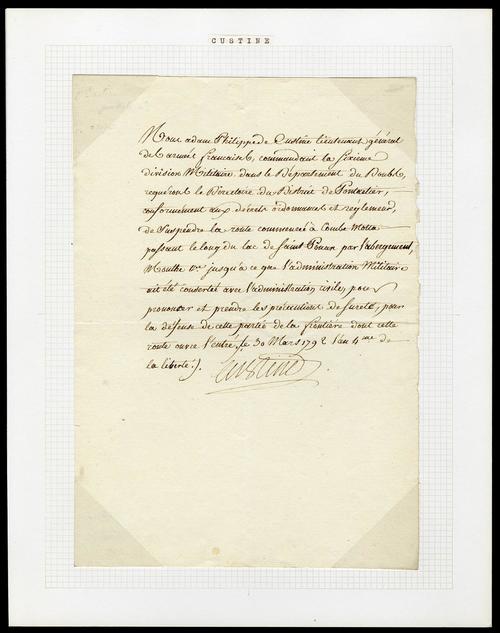 CUSTINE
Nous adam Philippe de Custine lieutenant général
de l'armée française, commandant la sixieme
division Militaire dans le Département du Doubs,
requérons le Directoire du District de Pontarlier,
conformement aux décrets ordonnances et réglemens,
de suspendre la route commencée à Combe Motta
passant le long du lac de Saint Point par l'abergement,
Mouthe &ca jusqu'à ce que l'administration Militaire
ait été concertée avec l'administration civile, pour
prononcer et prendre les précautions de sureté, pour
la défense de cette partie de la frontière dont cette
route ouvre l'entrée, le 30 Mars 1792 l'an 4me de
la liberté./.
Custine